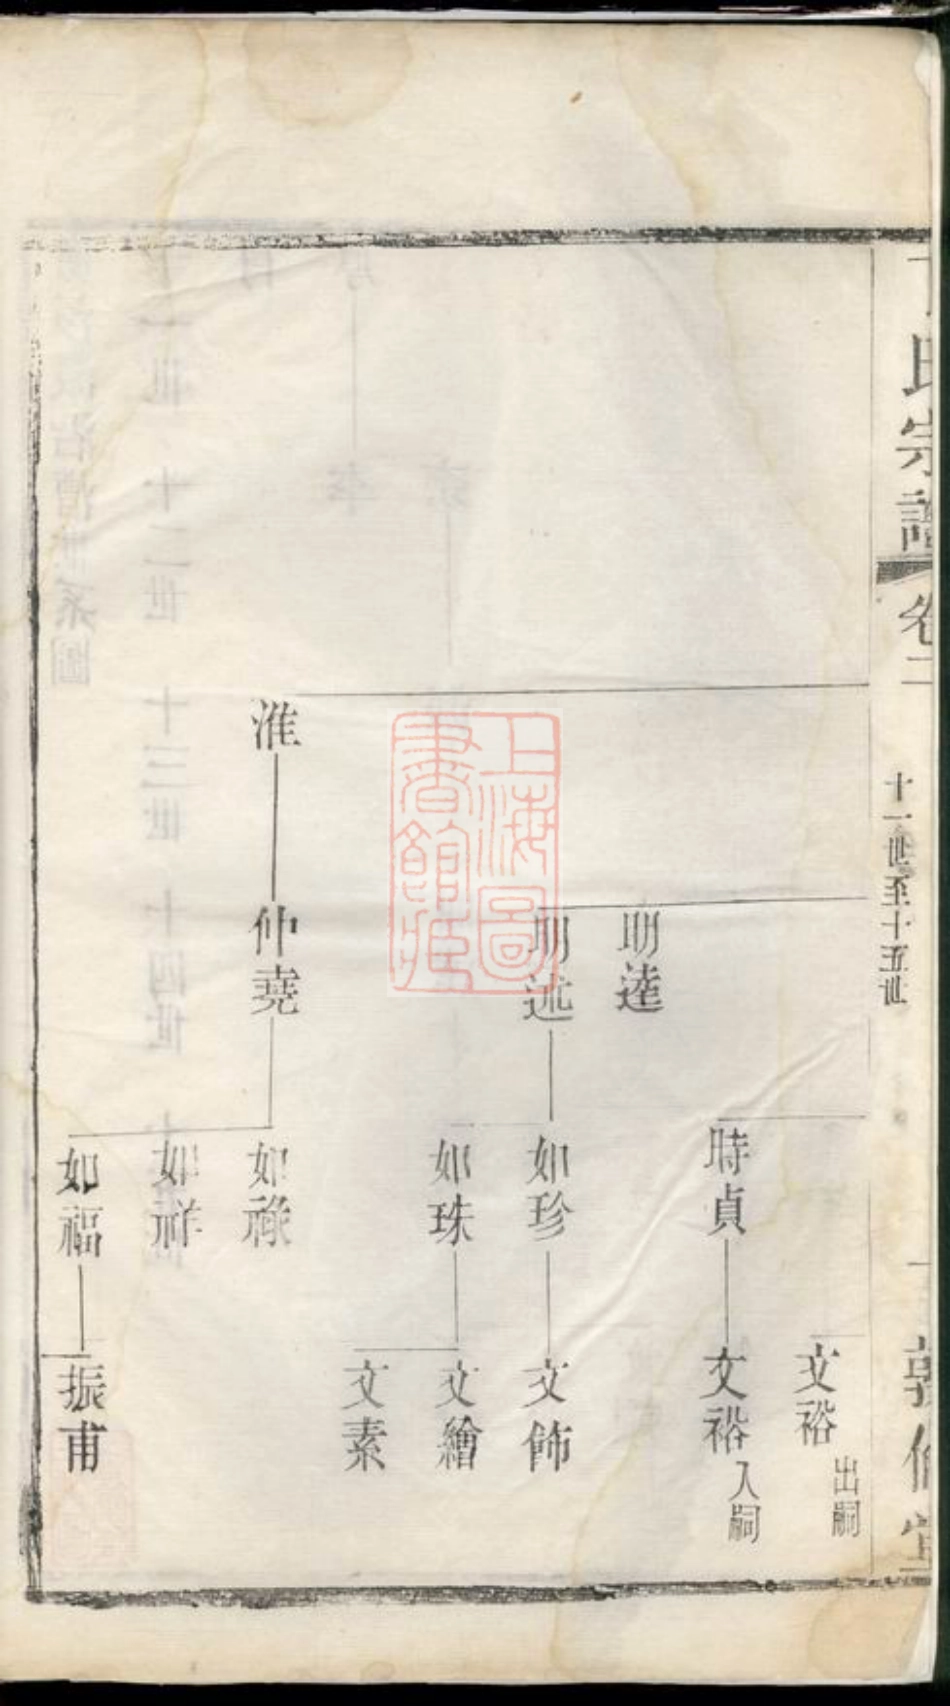 氏宗譜
卷二
十一世至十五世
文裕
出嗣
時貞
文裕
入嗣
明逵
明述
如珍
文飾
如珠
文繪
文素
淮
仲堯
如祿
如祥
如福
振甫
上海圖
書館藏